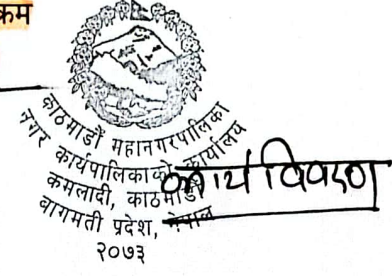 क्रम
काठमाडौं महानगरपालिका
नगर कार्यपालिकाको कार्यालय
कमलादी, काठमाडौं
बागमती प्रदेश, नेपाल
२०७३
कार्य विवरण